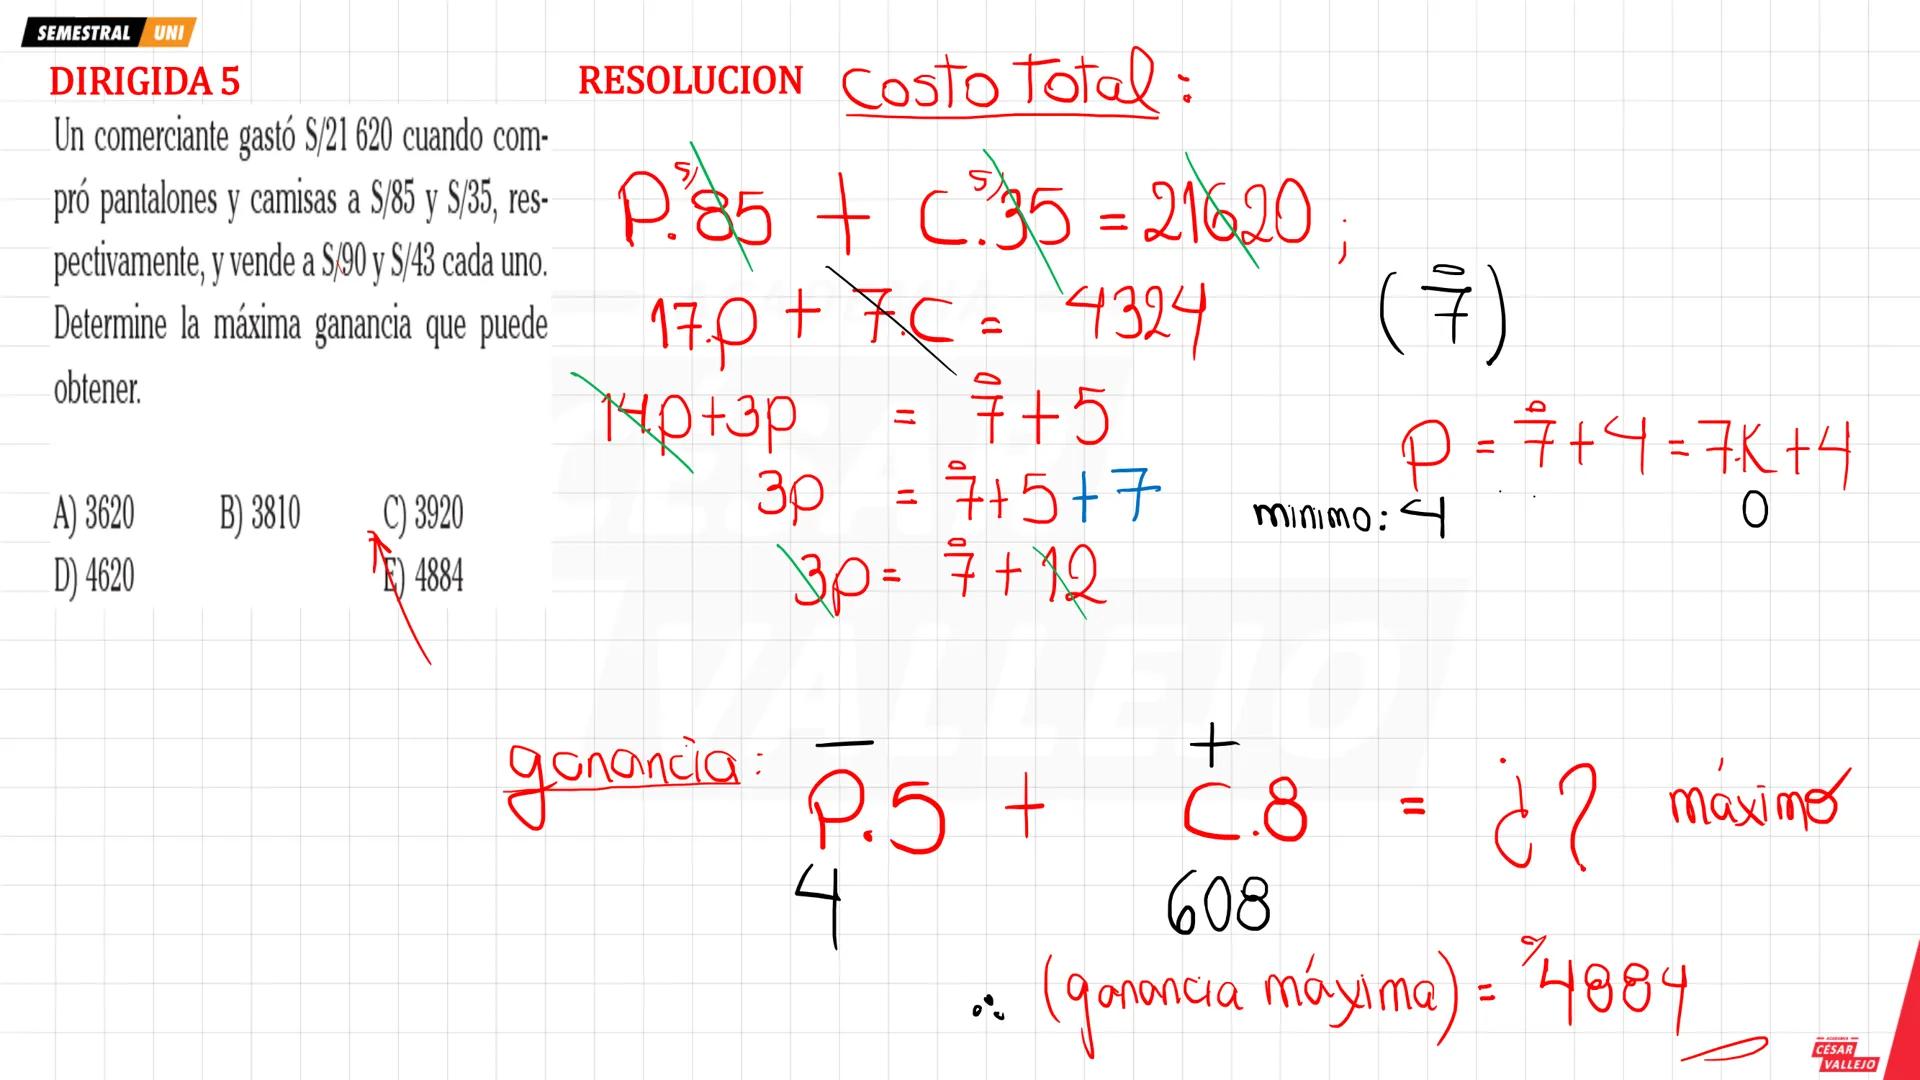 SEMESTRAL UNI
DIRIGIDA 5
Un comerciante gastó S/21 620 cuando com-
pró pantalones y camisas a S/85 y S/35, res-
pectivamente, y vende a S/90 y S/43 cada uno.
Determine la máxima ganancia que puede
obtener.
A) 3620 B) 3810 C) 3920
D) 4620 E) 4884
RESOLUCION costo Total:
P.S/85 + C.S/35 = 21620;
17.p + 7.C = 4324
(7̊)
14.p+3p = 7̊+5
3p = 7̊+5+7
3p = 7̊+12
p = 7̊+4 = 7.K+4
minimo: 4 0
ganancia: P.5 + C.8 = ¿? máximo
− +
4 608
∴ (ganancia máxima) = S/4884
ACADEMIA
CÉSAR
VALLEJO